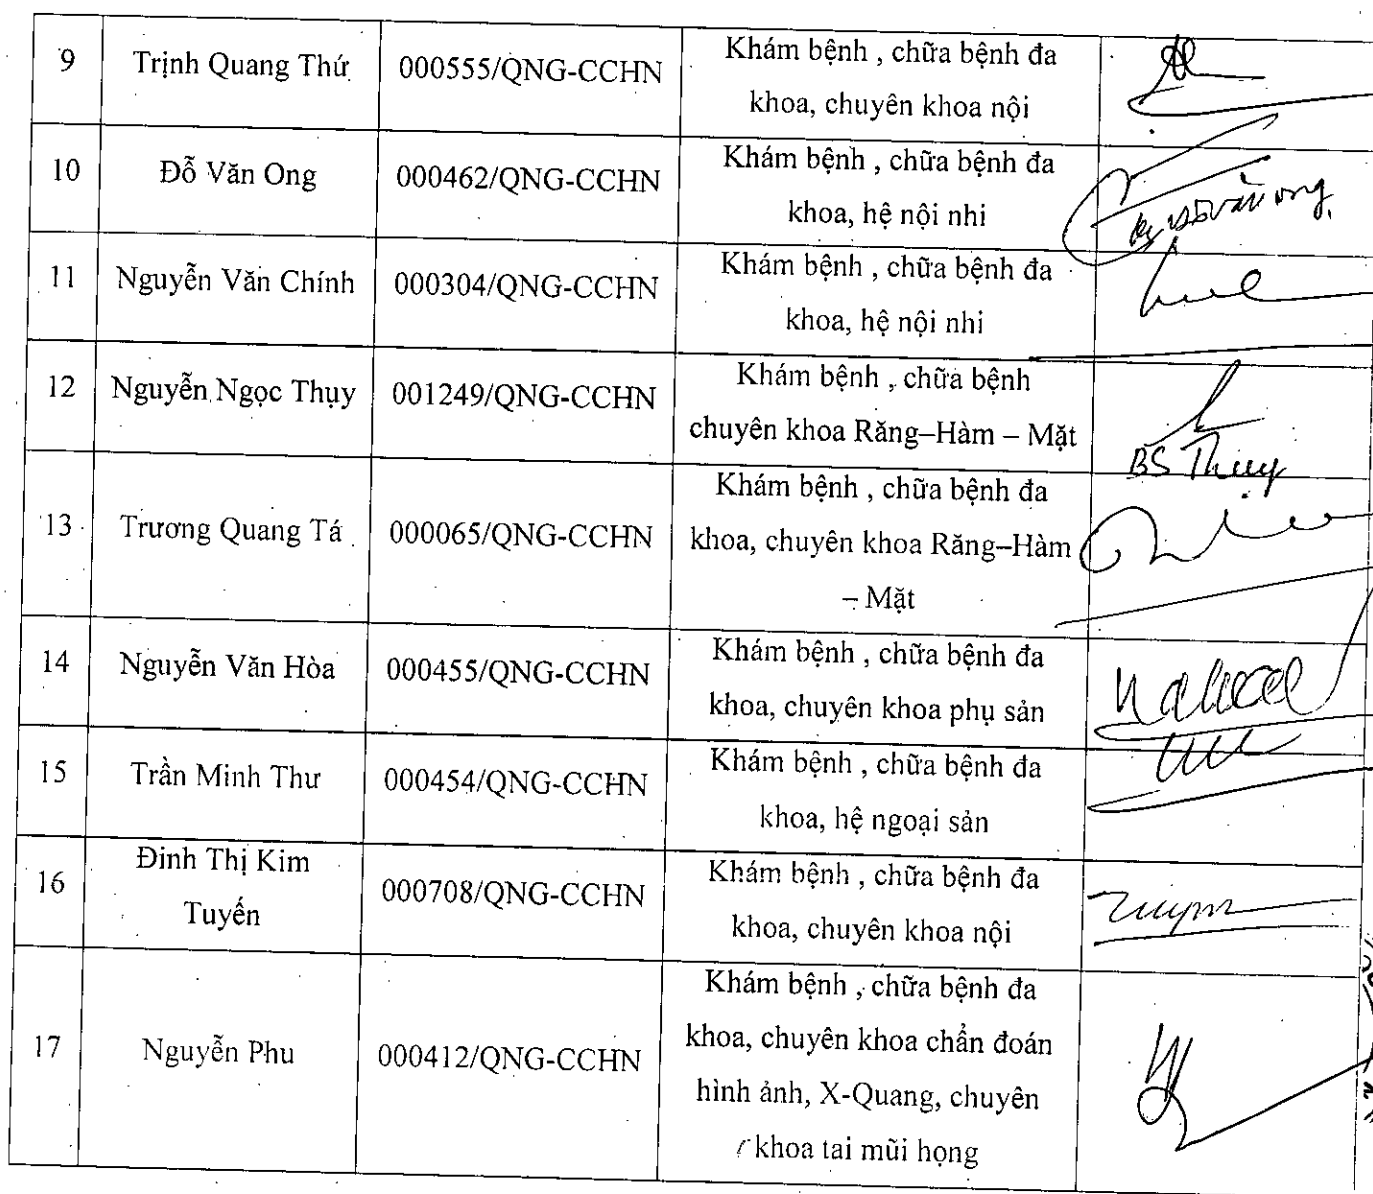 9 Trịnh Quang Thứ 000555/QNG-CCHN Khám bệnh , chữa bệnh đa
khoa, chuyên khoa nội
10 Đỗ Văn Ong 000462/QNG-CCHN Khám bệnh , chữa bệnh đa
khoa, hệ nội nhi
Văn ong
11 Nguyễn Văn Chính 000304/QNG-CCHN Khám bệnh , chữa bệnh đa
khoa, hệ nội nhi
12 Nguyễn Ngọc Thụy 001249/QNG-CCHN Khám bệnh , chữa bệnh
chuyên khoa Răng–Hàm – Mặt
BS Thụy
13 Trương Quang Tá 000065/QNG-CCHN Khám bệnh , chữa bệnh đa
khoa, chuyên khoa Răng–Hàm
– Mặt
14 Nguyễn Văn Hòa 000455/QNG-CCHN Khám bệnh , chữa bệnh đa
khoa, chuyên khoa phụ sản
15 Trần Minh Thư 000454/QNG-CCHN Khám bệnh , chữa bệnh đa
khoa, hệ ngoại sản
16 Đinh Thị Kim
Tuyến 000708/QNG-CCHN Khám bệnh , chữa bệnh đa
khoa, chuyên khoa nội
17 Nguyễn Phu 000412/QNG-CCHN Khám bệnh , chữa bệnh đa
khoa, chuyên khoa chẩn đoán
hình ảnh, X-Quang, chuyên
khoa tai mũi họng